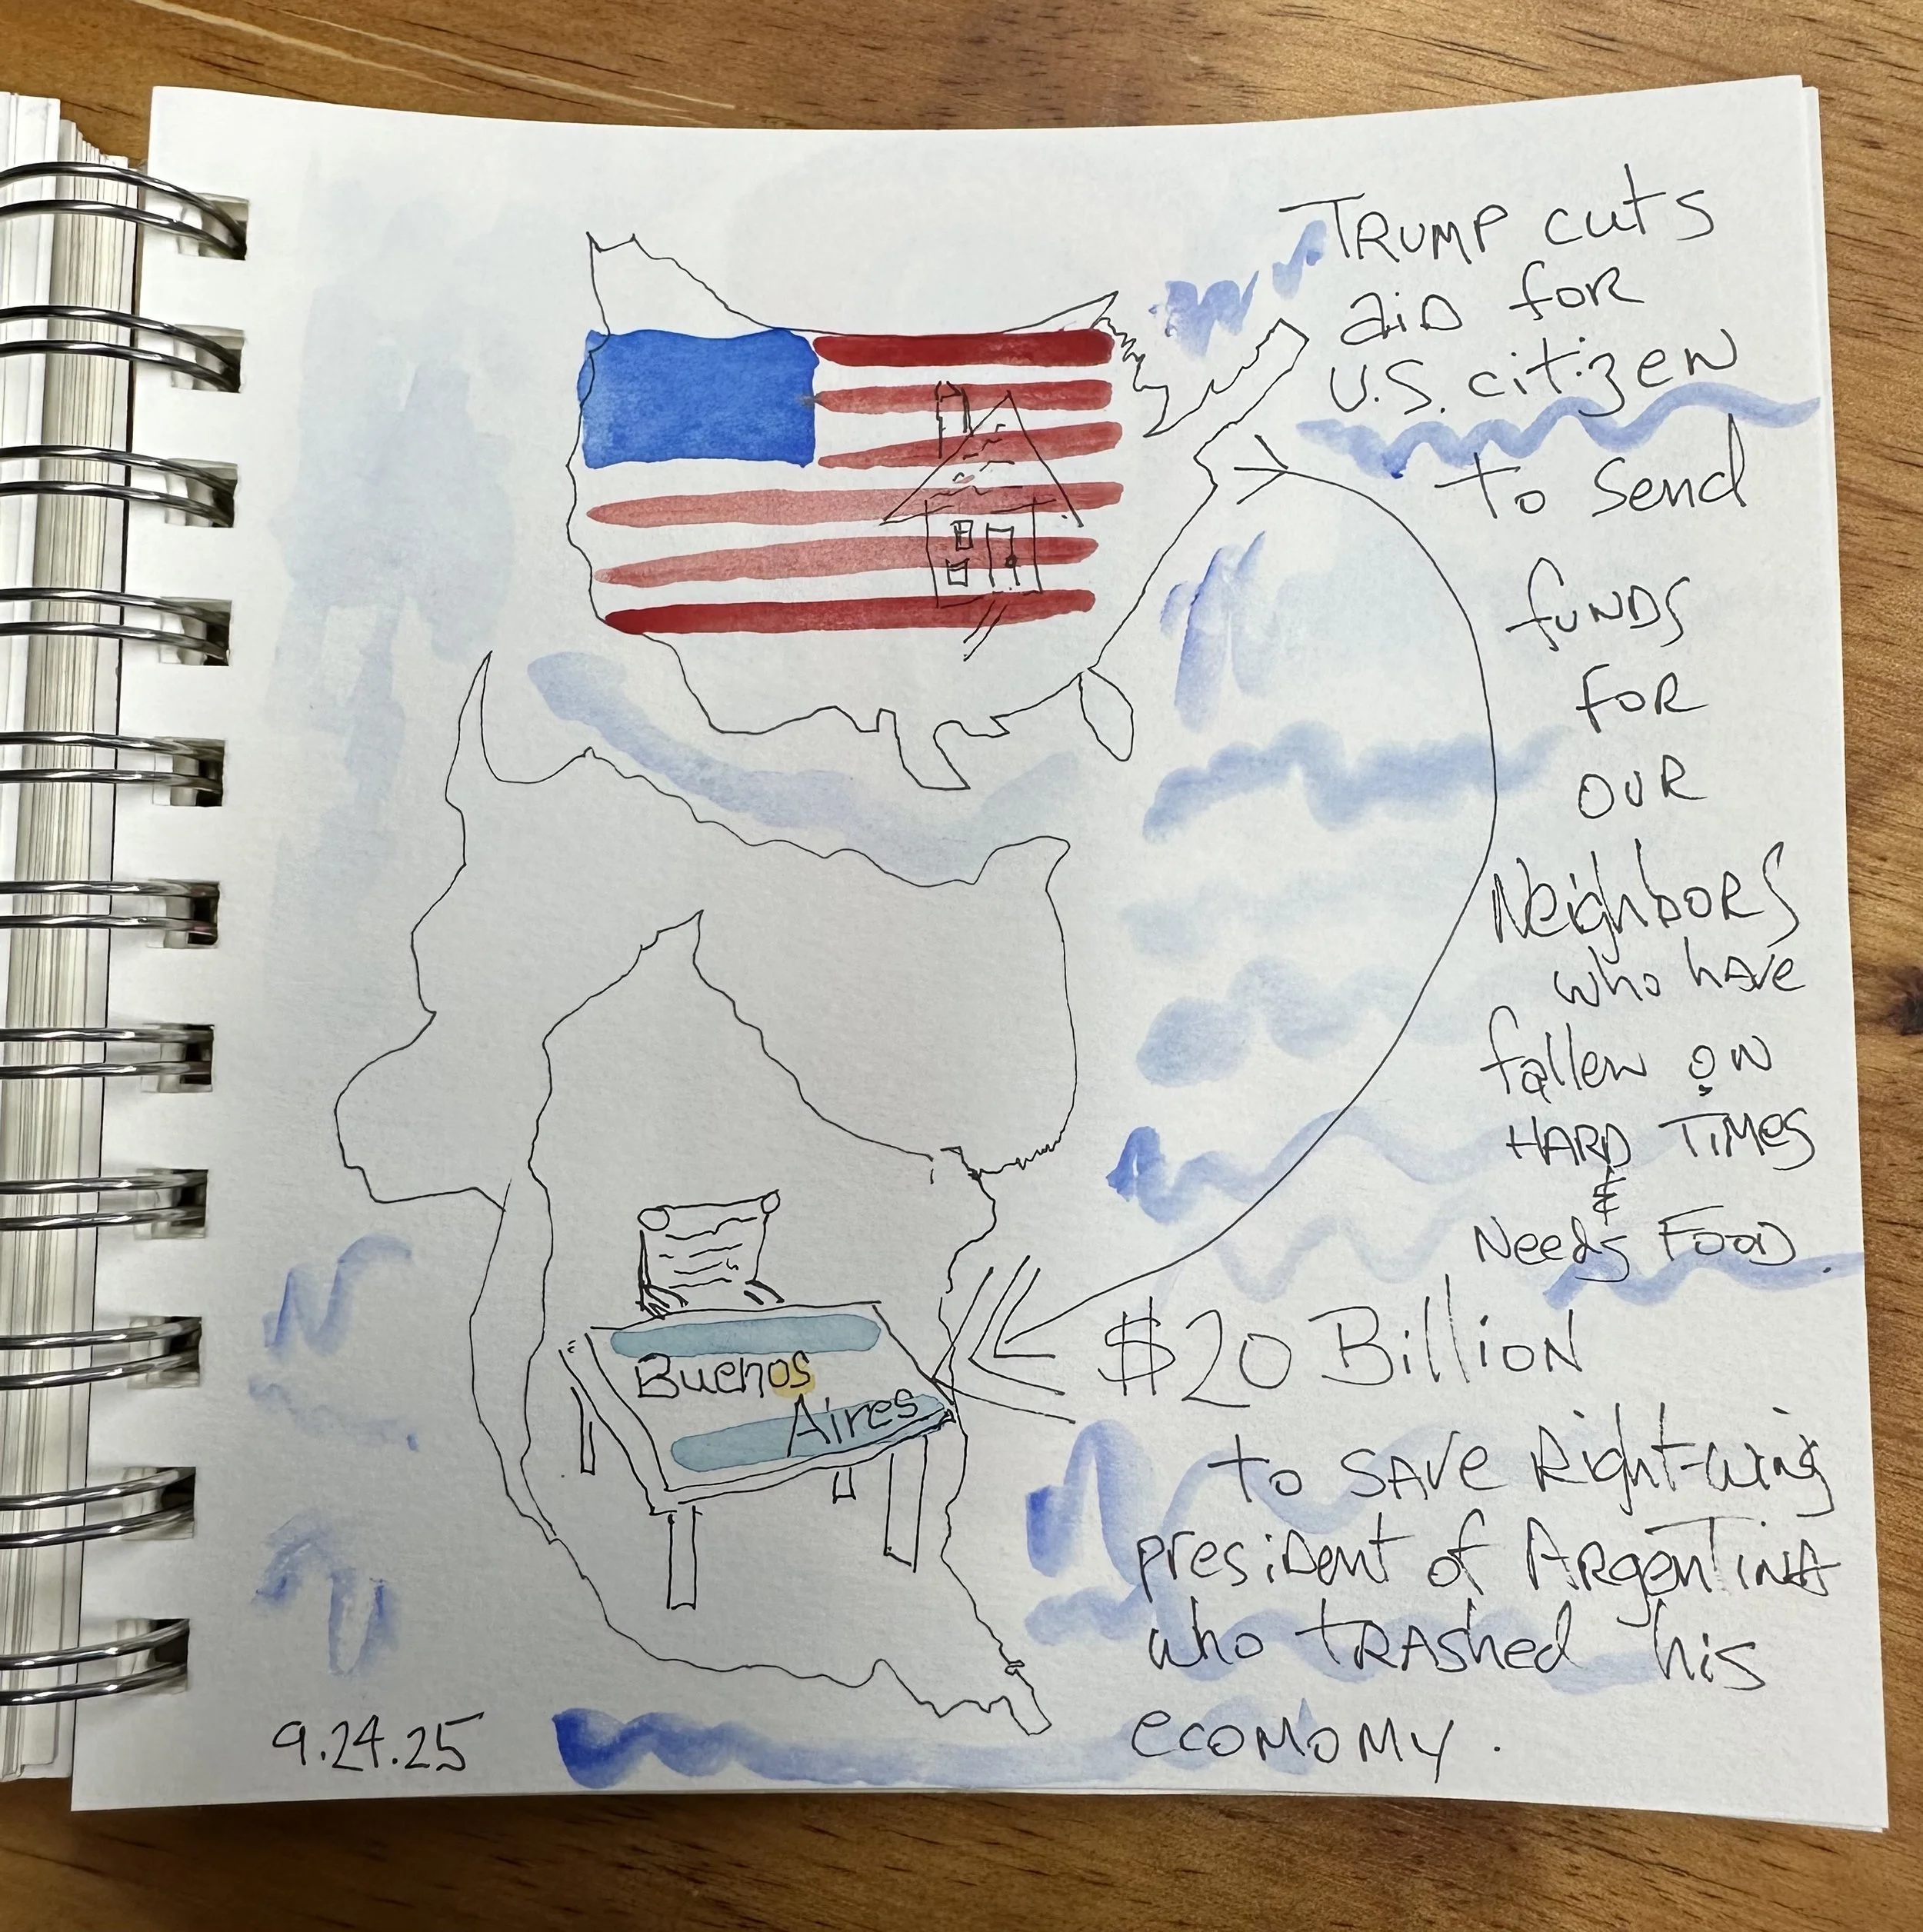 TRUMP cuts
aiD for
U.S. citizen
to send
fuNDS
FOR
OUR
NeighbORS
who hAve
fallen ON
HARD TiMes
&
Needs FOOD.
$20 Billion
to SAve Right-wing
presiDent of ArgenTinA
who TRAshed his
ecoMoMy.
Buenos
Aires
9.24.25